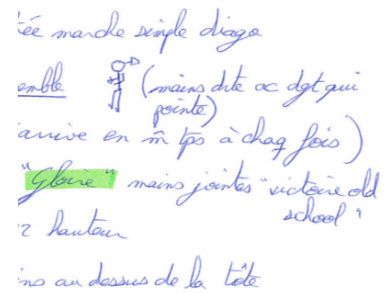 ée marche simple diago
emble (mains dte ac dgt qui
pointe)
arrive en m̂ tps à chaq fois)
"Gloire" mains jointes "victoire old
school"
hauteur
ns au dessus de la tête